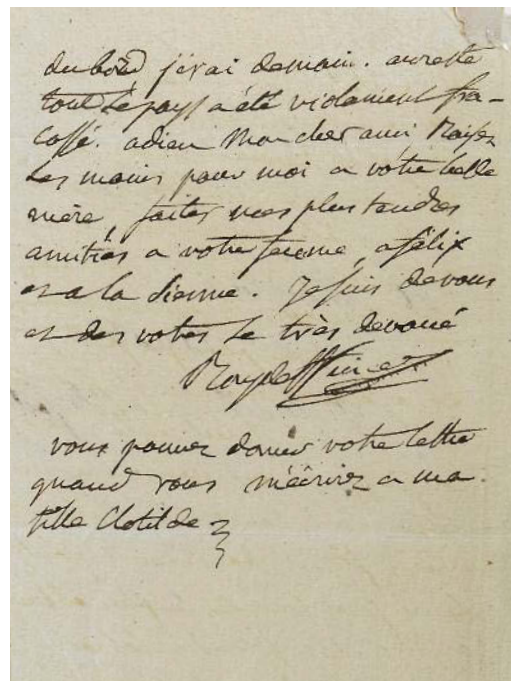 du bord j'irai demain. aureste
tout le pays a été violament fra-
cassé. adieu Mon cher ami Baisez
les mains pour moi a votre belle
mère, faites mes plus tendres
amitiés a votre femme, a félix
et a la sienne. Je suis de vous
et des votres le très devoué
vous pouvez donner votre lettre
quand vous m'écrirez a ma
fille Clotilde